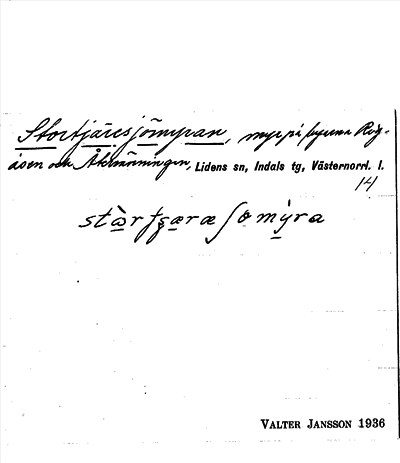 Stortjäresjömyran, myr på byarna Rog-
åsen och Åkermänningen, Lidens sn, Indals tg, Västernorrl. l.
14
VALTER JANSSON 1936